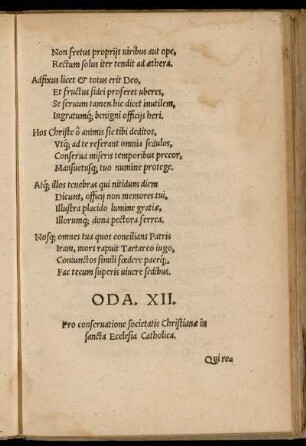 Non fretus proprijs uiribus aut ope,
Rectum solus iter tendit ad æthera.
Adfixus licet & totus erit Deo,
Et fructus fidei proferet uberes,
Se seruum tamen hic dicet inutilem,
Ingratumq; benigni officijs heri.
Hos Christe ô animis sic tibi deditos,
Vtq; ad te referant omnia sedulos,
Conserua miseris temporibus precor,
Mansuetusq; tuo numine protege.
Atq; illos tenebras qui nitidum diem
Dicunt, officij non memores tui,
Illustra placido lumine gratiæ,
Illorumq; doma pectora ferrea.
Nosq; omnes tua quos concilians Patris
Iram, mors rapuit Tartareo iugo,
Coniunctos simili fœdere paceq;,
Fac tecum superis uiuere sedibus.
ODA. XII.
Pro conseruatione societatis Christianæ in
sancta Ecclesia Catholica.
Qui rea